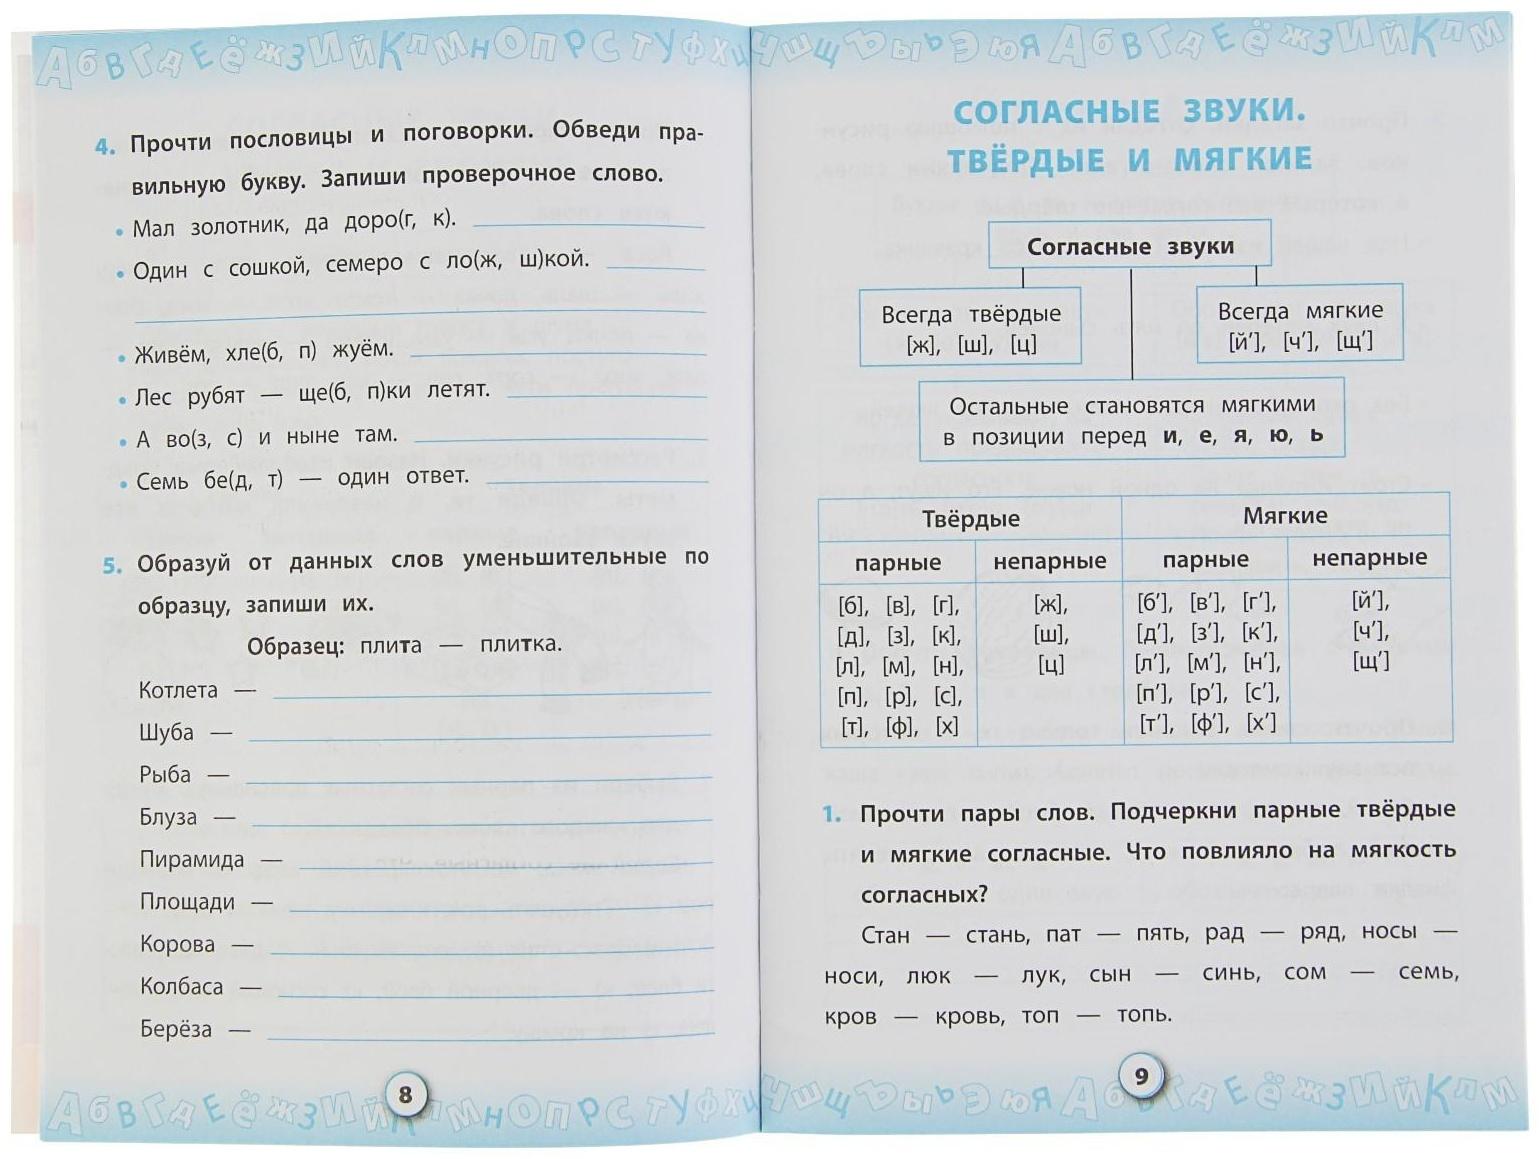 А б В Г Д Е Ё Ж З И Й К Л М Н О П Р С Т У Ф Х Ц
4. Прочти пословицы и поговорки. Обведи пра-
вильную букву. Запиши проверочное слово.
• Мал золотник, да доро(г, к).
• Один с сошкой, семеро с ло(ж, ш)кой.
• Живём, хле(б, п) жуём.
• Лес рубят — ще(б, п)ки летят.
• А во(з, с) и ныне там.
• Семь бе(д, т) — один ответ.
5. Образуй от данных слов уменьшительные по
образцу, запиши их.
Образец: плита — плитка.
Котлета —
Шуба —
Рыба —
Блуза —
Пирамида —
Площади —
Корова —
Колбаса —
Берёза —
8
А б В Г Д Е Ё Ж З И Й К Л М Н О П Р С Т У Ф Х Ц
Ч Ш Щ Ъ Ы Ь Э Ю Я А б В Г Д Е Ё Ж З И Й К Л М
СОГЛАСНЫЕ ЗВУКИ.
ТВЁРДЫЕ И МЯГКИЕ
Согласные звуки
Всегда твёрдые
[ж], [ш], [ц]
Всегда мягкие
[й’], [ч’], [щ’]
Остальные становятся мягкими
в позиции перед и, е, я, ю, ь
Твёрдые Мягкие
парные непарные парные непарные
[б], [в], [г], [ж], [б’], [в’], [г’], [й’],
[д], [з], [к], [ш], [д’], [з’], [к’], [ч’],
[л], [м], [н], [ц] [л’], [м’], [н’], [щ’]
[п], [р], [с], [п’], [р’], [с’],
[т], [ф], [х] [т’], [ф’], [х’]
1. Прочти пары слов. Подчеркни парные твёрдые
и мягкие согласные. Что повлияло на мягкость
согласных?
Стан — стань, пат — пять, рад — ряд, носы —
носи, люк — лук, сын — синь, сом — семь,
кров — кровь, топ — топь.
9
Ч Ш Щ Ъ Ы Ь Э Ю Я А б В Г Д Е Ё Ж З И Й К Л М